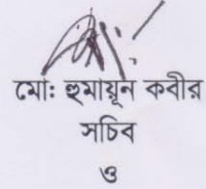 মোঃ হুমায়ূন কবীর
সচিব
ও